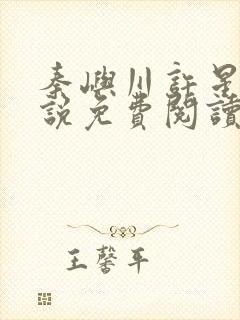 秦嶼川許星
說免費閱讀
王馨平